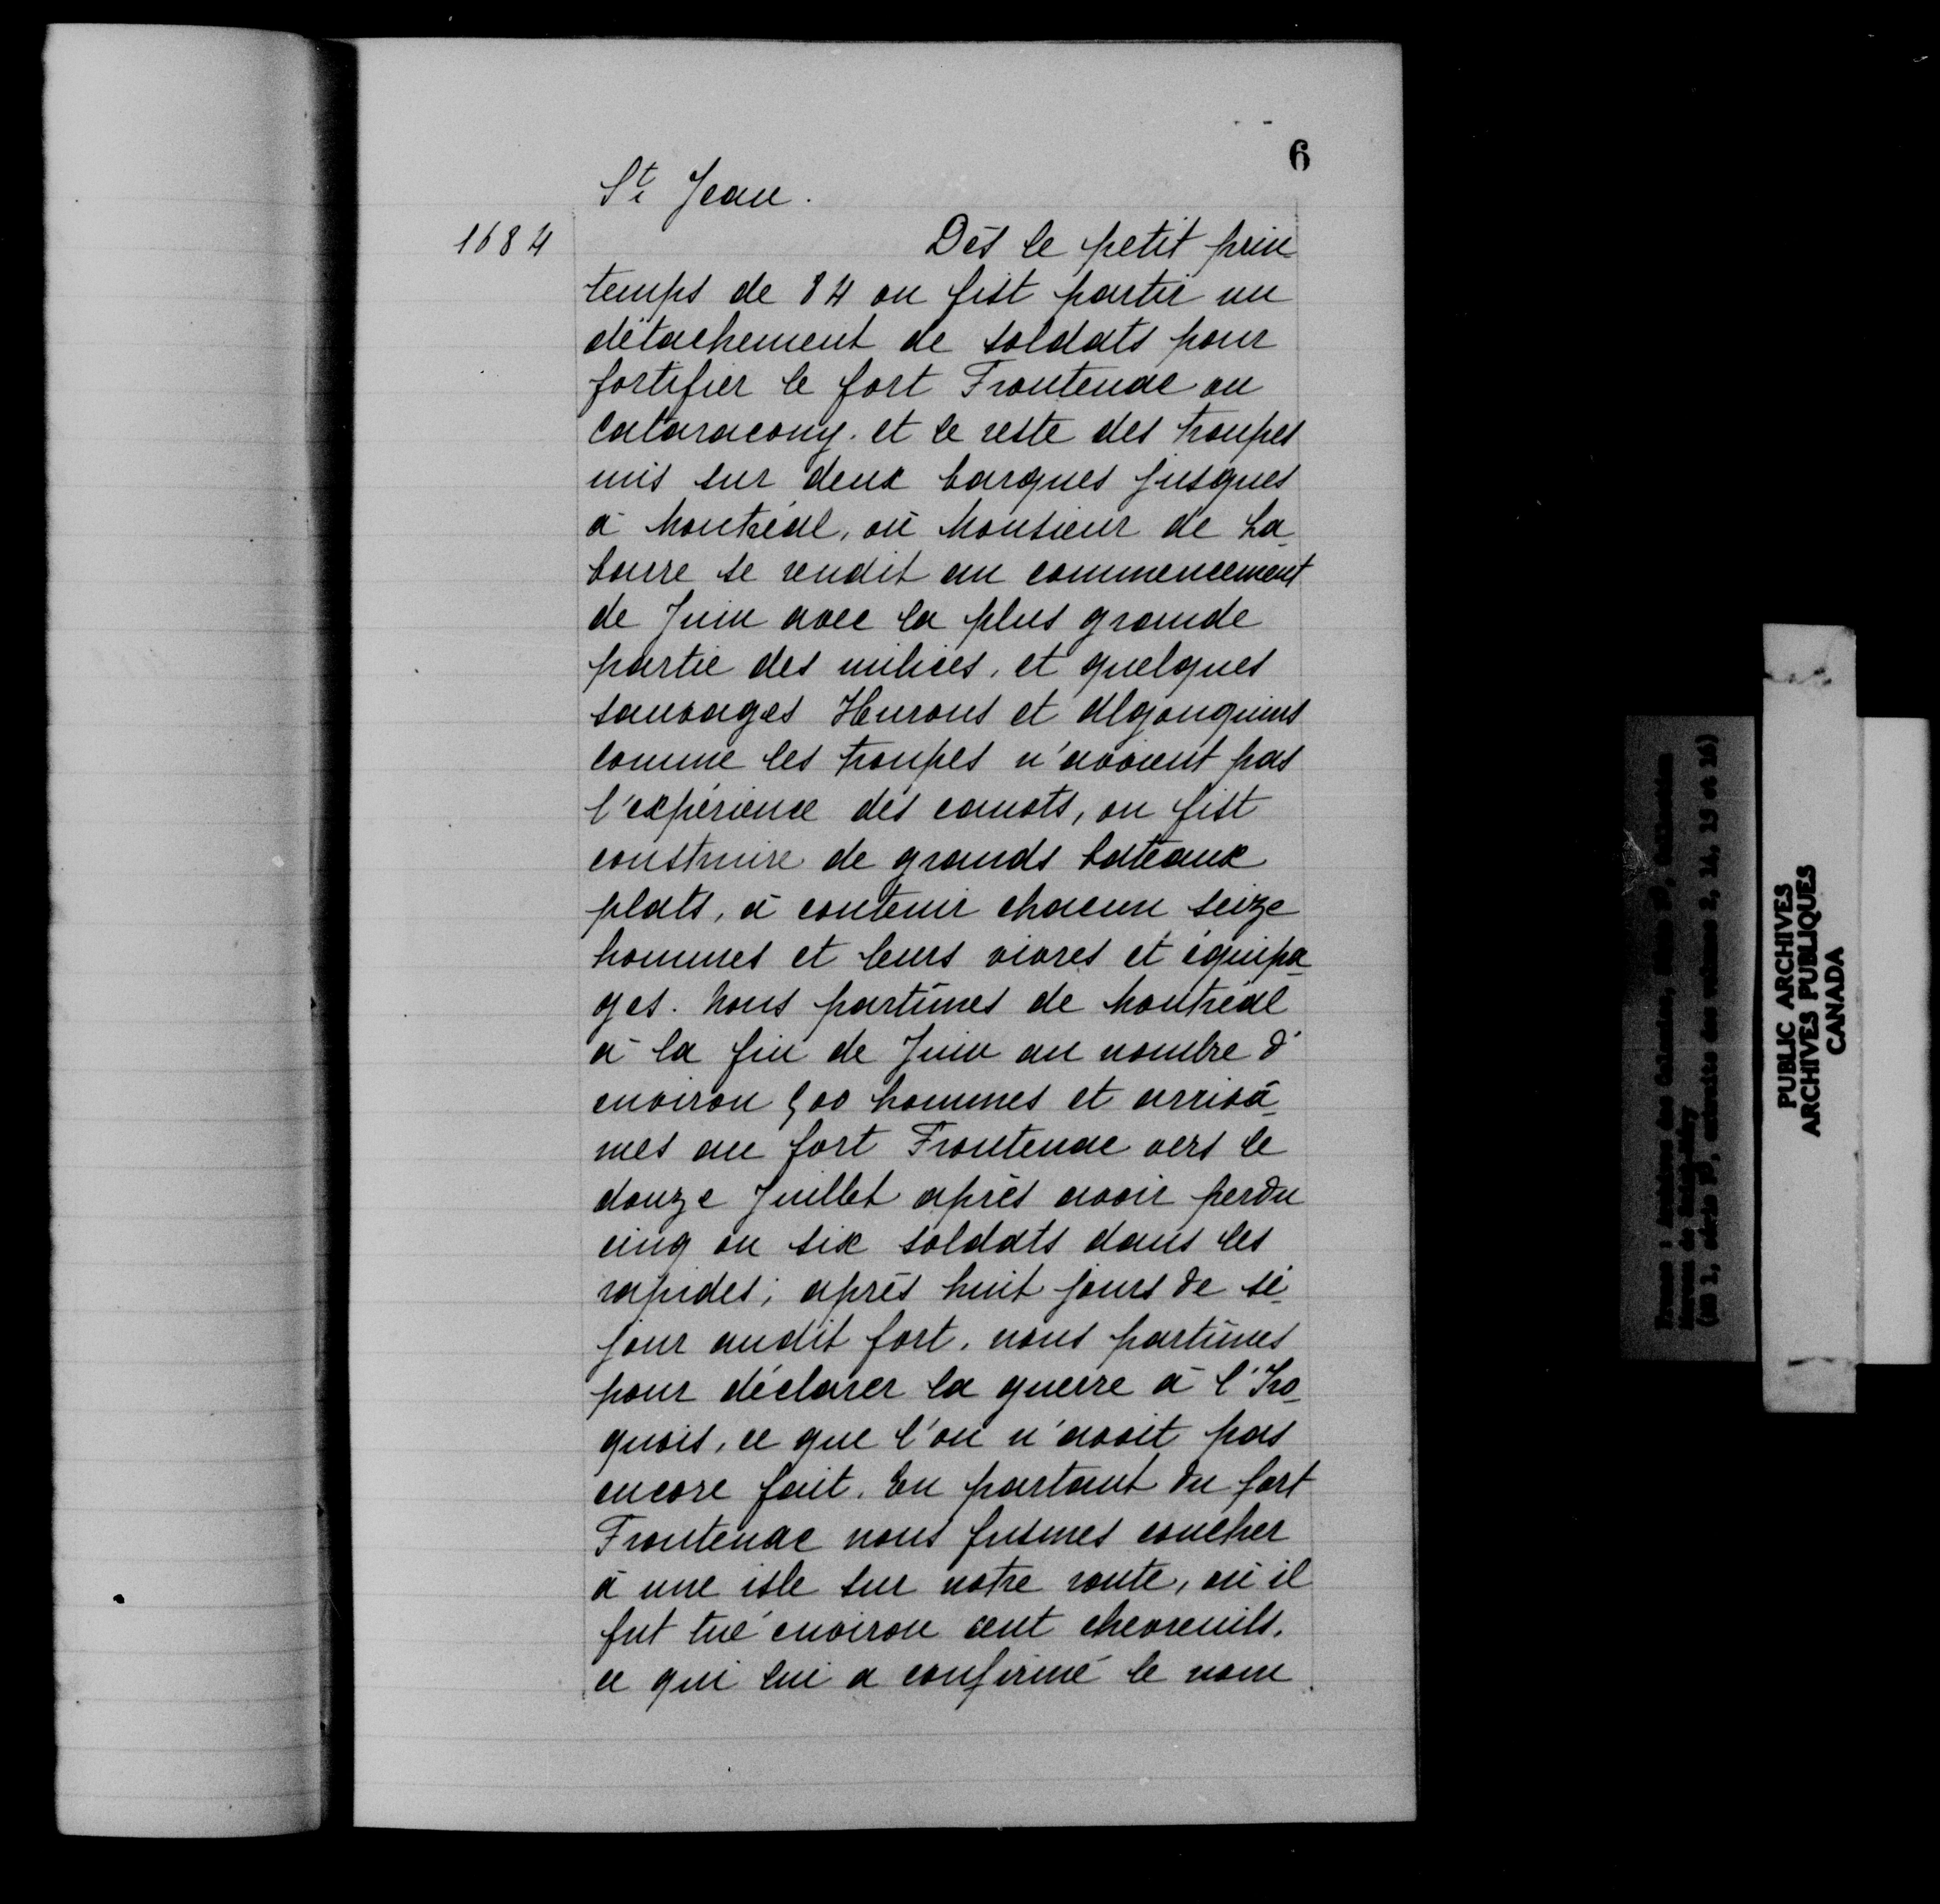 6
St. Jean.
1684
Dès le petit prin-
temps de 84 on fist partir un
détachement de soldats pour
fortifier le fort Frontenac ou
Cataracouy. et le reste des troupes
mis sur deux barques jusques
à Montréal, où Monsieur de La-
barre se rendit au commencement
de Juin avec la plus grande
partie des milices, et quelques
sauvages Hurons et Algonquins
comme les troupes n'avoient pas
l'expérience des canots, on fist
construire de grands bateaux
plats, à contenir chacun seize
hommes et leurs vivres et équipa-
ges. Nous partîmes de Montréal
à la fin de Juin au nombre d'
environ 900 hommes et arrivâ-
mes au fort Frontenac vers le
douze Juillet après avoir perdu
cinq ou six soldats dans les
rapides; après huit jours de sé-
jour audit fort, nous partîmes
pour déclarer la guerre à l'Iro-
quois, ce que l'on n'avoit pas
encore fait. En partant du fort
Frontenac nous fusmes coucher
à une isle sur notre route, où il
fut tué environ cent chevreuils,
ce qui lui a confirmé le nom
PUBLIC ARCHIVES
ARCHIVES PUBLIQUES
CANADA